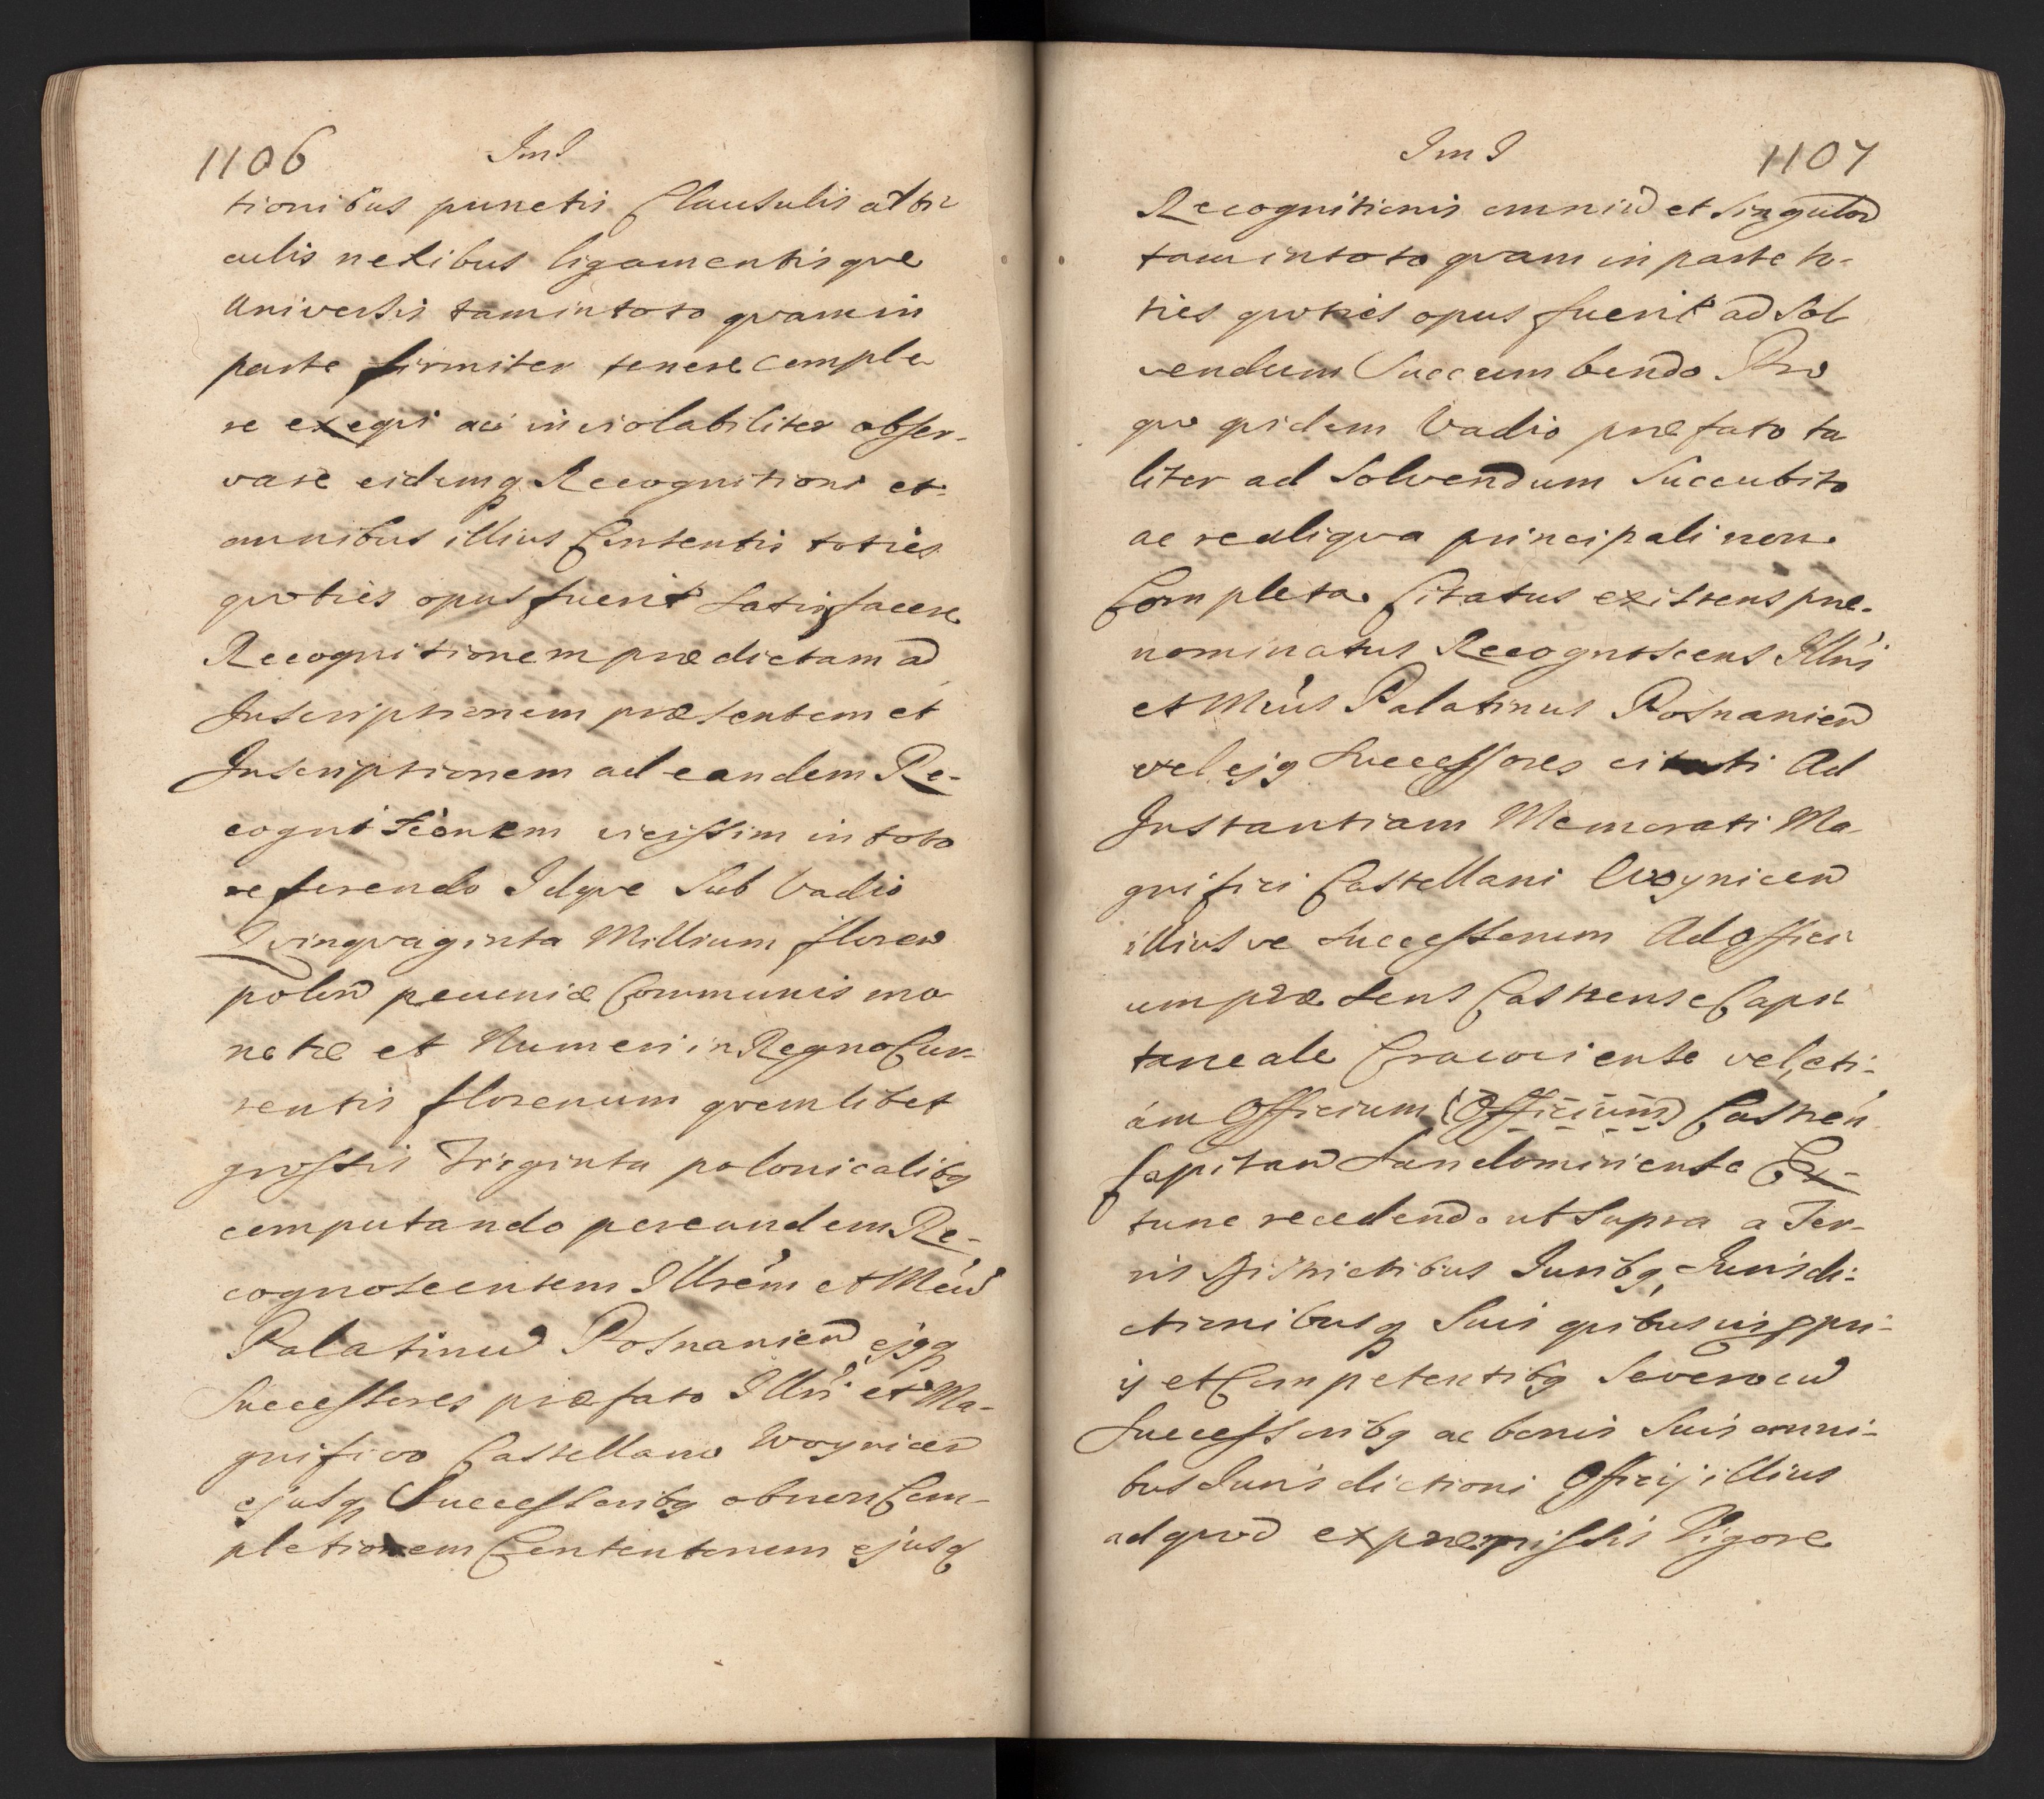 1106 Im I
tionibus punctis Clausulis arti
culis nexibus ligamentisque
Universis tam in toto qvam in
parte firmiter tenere comple
re exeqvi ac inviolabiliter obser-
vare eidemq Recognitioni et
omnibus illius Contentis toties
qvoties opus fuerit satisfacere
Recognitionem prædictam ad
Inscriptionem præsentem et
Inscriptionem ad eandem Re-
cognitionem vicissim in toto
referendo Idqve Sub Vadio
Qvinqvaginta Millium floren
polon pecuniæ Communis mo
netæ et Numeri in Regno Cur-
rentis florenum qvemlibet
grossis Triginta polonicalibq
computando per eundem Re-
cognoscentem Illrem et Mcum
Palatinum Posnanien ejqq
Successores præfato Illri et Ma-
gnifico Castellano Woynicen
ejusq Successoribq ob non Com-
pletionem Contentorum ejusq
Im I 1107
Recognitionis omniu et Singulor
tam in toto qvam in parte to-
ties qvoties opus fuerit ad Sol
vendum Succumbendo Pro
qvo qvidem Vadio præfato ta
liter ad Solvendum Succubito
ac re aliqva principali non
Completa Citatus existens præ-
nominatus Recognoscens Illris
et Mcus Palatinus Posnanien
vel ejq Successores citati Ad
Instantiam Memorati Ma
gnifici Castellani Woynicen
illius ve Successorum Ad Offici
um præsens Castrense Capi
taneale Cracoviense vel, eti-
am Officium (Officium) Castren
Capitan Sandomiriense Ex-
tunc recedendo ut Supra a Ter-
ris Districtibus Juribq, Jurisdi-
ctionibusq Suis qvibusvis ppri-
js et Competentibq Severo cu
Successoribq ac bonis Suis omni-
bus Jurisdictioni Officij illius
ad qvod ex præmissis Vigore